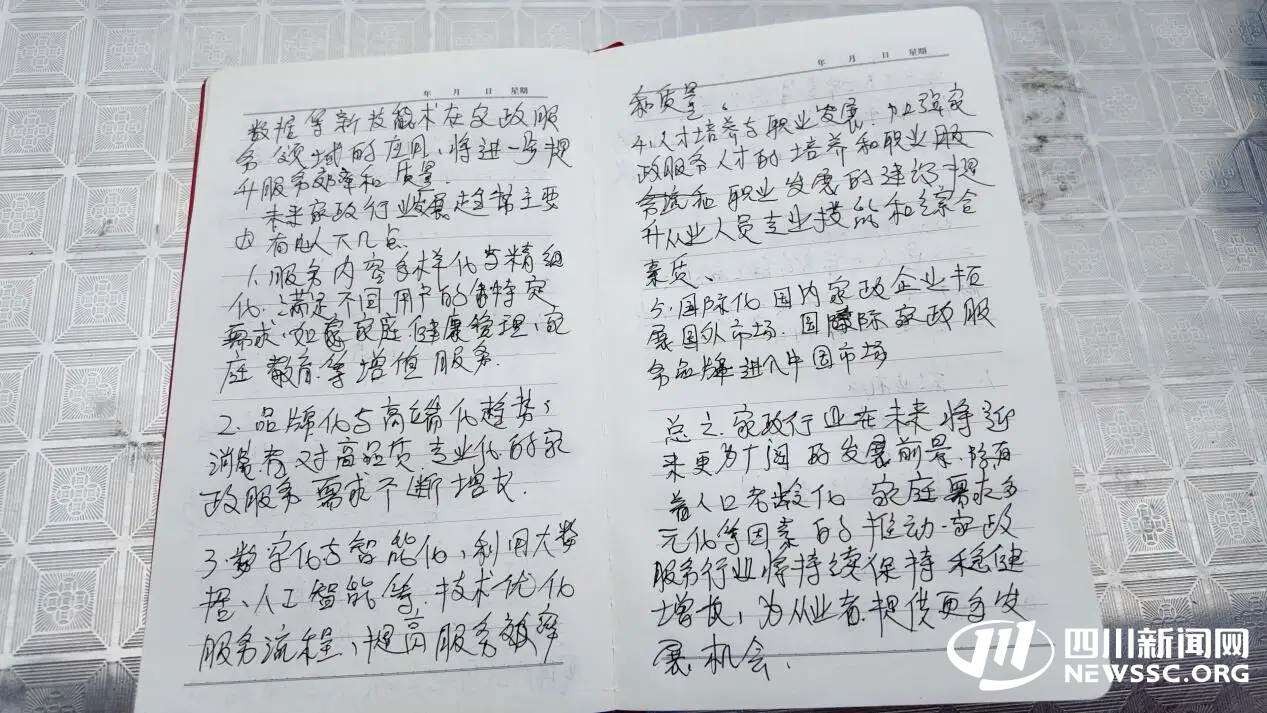 年 月 日 星期
数据等新技术在家政服
务领域的应用,将进一步提
升服务效率和质量.
未来家政行业发展趋势主要
由 有以下几点
1.服务内容多样化与精细
化:满足不同用户的特定
需求,如家庭健康管理、家
庭教育等增值服务.
2.品牌化与高端化趋势:
消费者对高品质、专业化的家
政服务需求不断增长.
3.数字化与智能化,利用大数
据、人工智能等,技术优化
服务流程,提高服务效率
年 月 日 星期
和质量.
4.人才培养与职业发展,加强家
政服务人才的培养和职业服
和职业发展的建设提
升从业人员专业技能和综合
素质、
5.国际化 国内家政企业拓
展国外市场.国际家政服
务品牌进入中国市场
总之.家政行业在未来将迎
来更为广阔的发展前景.随
着人口老龄化 家庭需求多
元化等因素的推动.家政
服务行业将持续保持稳健
增长,为从业者提供更多发
展机会.
四川新闻网
NEWSSC.ORG